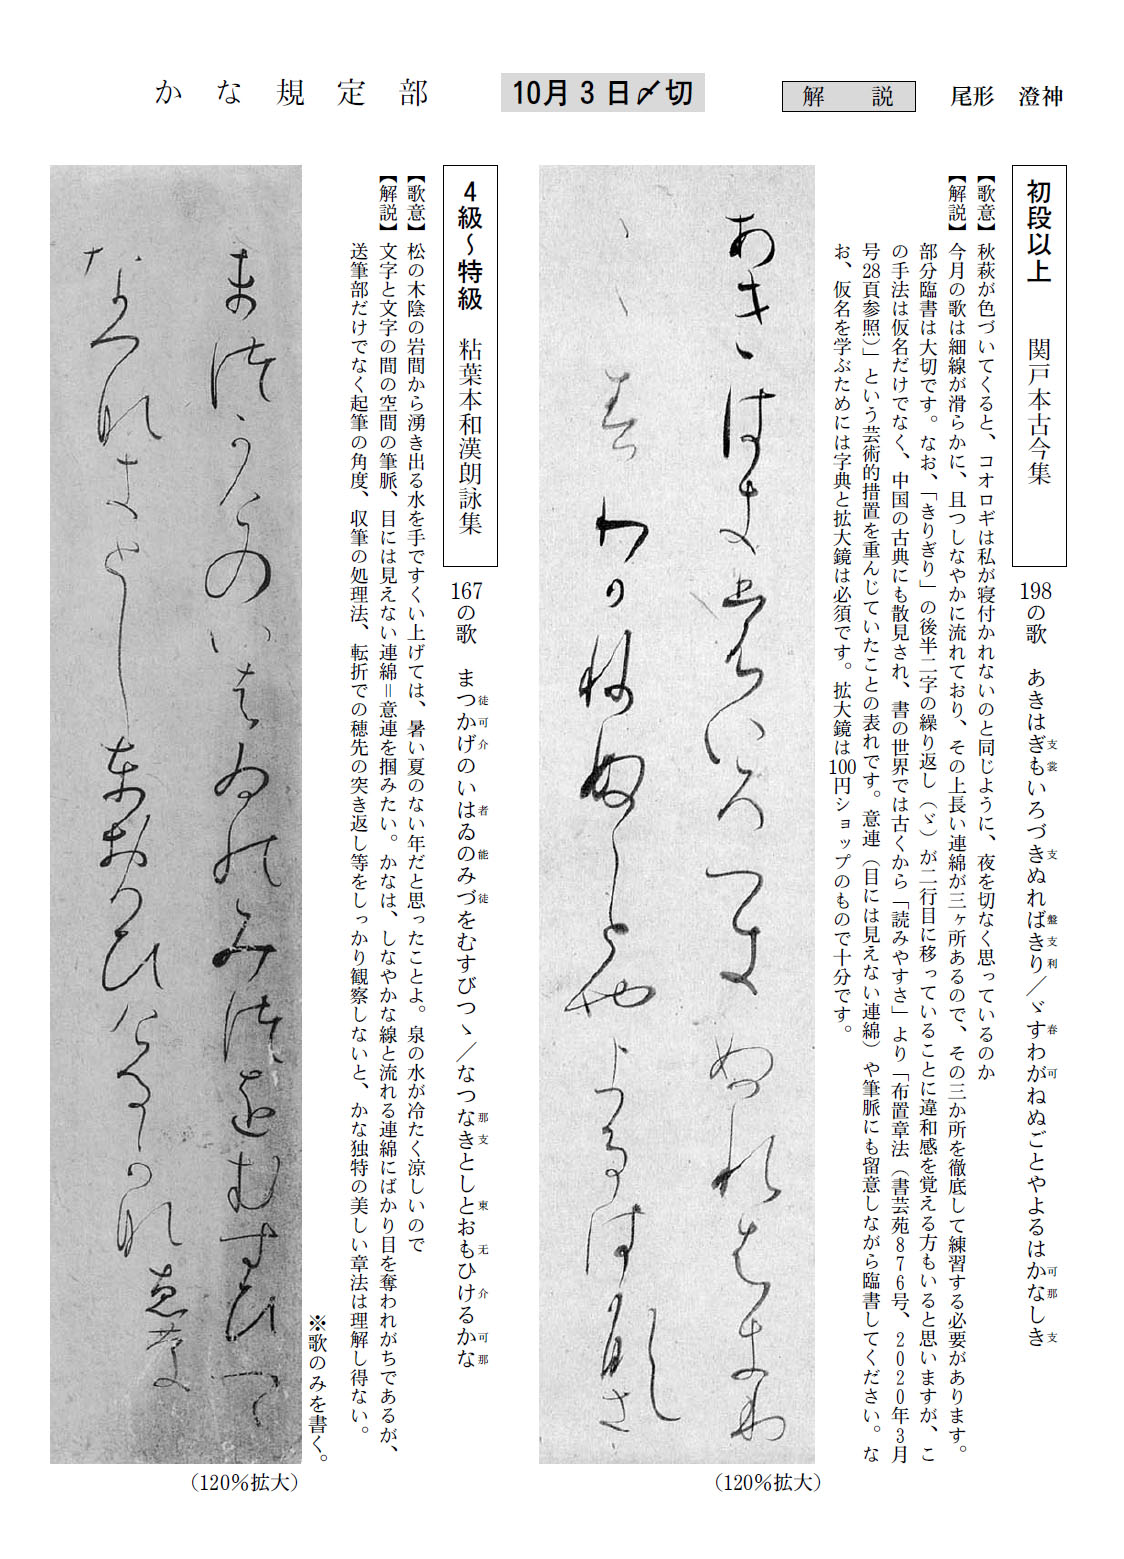 かな規定部
10月3日〆切
解説
尾形 澄神
初段以上 関戸本古今集
198の歌 あきはぎもいろづきぬればきり／ゞすわがねぬごとやよるはかなしき
支 裳 支 盤 支 利 春 可 可 那 支
【歌意】 秋萩が色づいてくると、コオロギは私が寝付かれないのと同じように、夜を切なく思っているのか
【解説】 今月の歌は細線が滑らかに、且つしなやかに流れており、その上長い連綿が三ヶ所あるので、その三か所を徹底して練習する必要があります。
部分臨書は大切です。なお、「きりぎり」の後半二字の繰り返し（ゞ）が二行目に移っていることに違和感を覚える方もいると思いますが、こ
の手法は仮名だけでなく、中国の古典にも散見され、書の世界では古くから「読みやすさ」より「布置章法（書芸苑876号、2020年3月
号28頁参照）」という芸術的措置を重んじていたことの表れです。意連（目には見えない連綿）や筆脈にも留意しながら臨書してください。な
お、仮名を学ぶためには字典と拡大鏡は必須です。拡大鏡は100円ショップのもので十分です。
あきゝはきも裳いろつ支ぬれは支利
ゝゝ春わかねぬことやよるは可那しき
（120％拡大）
4級～特級 粘葉本和漢朗詠集
167の歌 まつかげのいはゐのみづをむすびつゝ／なつなきとしとおもひけるかな
徒 可 介 者 能 徒 那 支 東 无 介 可 那
【歌意】 松の木陰の岩間から湧き出る水を手ですくい上げては、暑い夏のない年だと思ったことよ。泉の水が冷たく涼しいので
【解説】 文字と文字の間の空間の筆脈、目には見えない連綿＝意連を掴みたい。かなは、しなやかな線と流れる連綿にばかり目を奪われがちであるが、
送筆部だけでなく起筆の角度、収筆の処理法、転折での穂先の突き返し等をしっかり観察しないと、かな独特の美しい章法は理解し得ない。
※歌のみを書く。
まつかけのいはゐのみつをむすひつゝ
なつなきとしとおもひけるかな
（120％拡大）